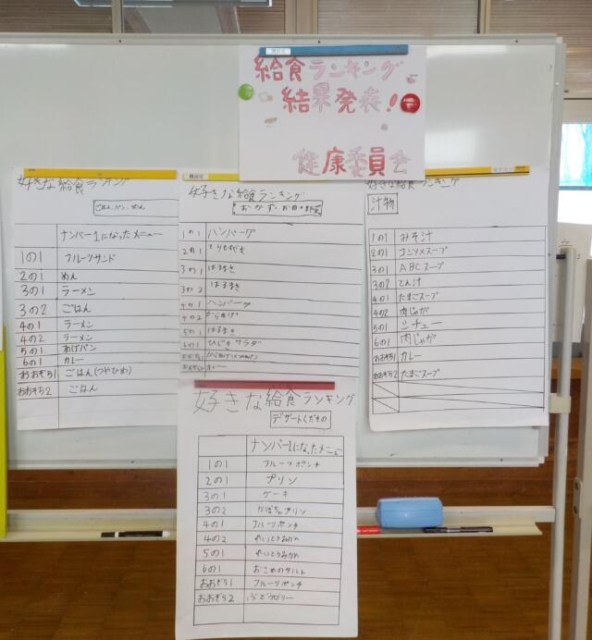 給食ランキング
結果発表!
健康委員会
好きな給食ランキング
ごはん、パン、めん
ナンバー1になったメニュー
1の1 フルーツサンド
2の1 めん
3の1 ラーメン
3の2 ごはん
4の1 ラーメン
4の2 ラーメン
5の1 あげパン
6の1 カレー
おおぞら1 ごはん(つやひめ)
おおぞら2 ごはん
好きな給食ランキング
おかず
1の1 ハンバーグ
2の1
3の1 はるまき
3の2 はるまき
4の1 ハンバーグ
4の2 からあげ
5の1 はるまき
6の1 ひじきサラダ
好きな給食ランキング
汁物
1の1 みそ汁
2の1 コンソメスープ
3の1 ABCスープ
3の2 とん汁
4の1 たまごスープ
4の2 肉じゃが
5の1 シチュー
6の1 肉じゃが
おおぞら1 カレー
おおぞら2 たまごスープ
好きな給食ランキング
デザートくだもの
ナンバー1になったメニュー
1の1 フルーツポンチ
2の1 プリン
3の1 ケーキ
3の2 かぼちゃプリン
4の1 フルーツポンチ
4の2 れいとうみかん
5の1 れいとうみかん
6の1 おこめのタルト
おおぞら1 フルーツポンチ
おおぞら2 ぶどうゼリー